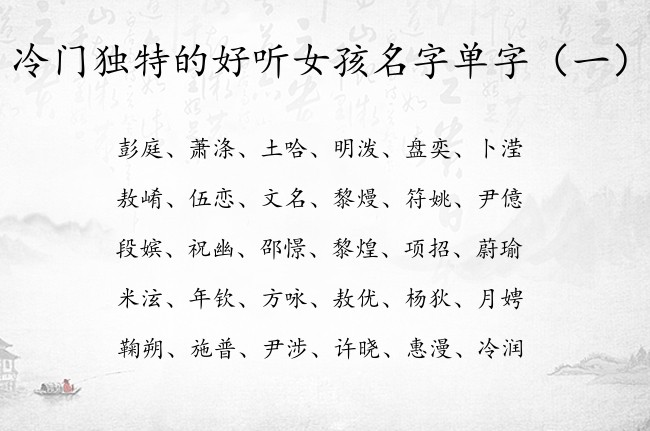 冷门独特的好听女孩名字单字（一）
彭庭、萧涤、土哈、明泼、盘奕、卜滢
敖崤、伍恋、文名、黎熳、符姚、尹億
段嫔、祝幽、邵憬、黎煌、项招、蔚瑜
米泫、年钦、方咏、敖优、杨狄、月娉
鞠朔、施普、尹涉、许晓、惠漫、冷润